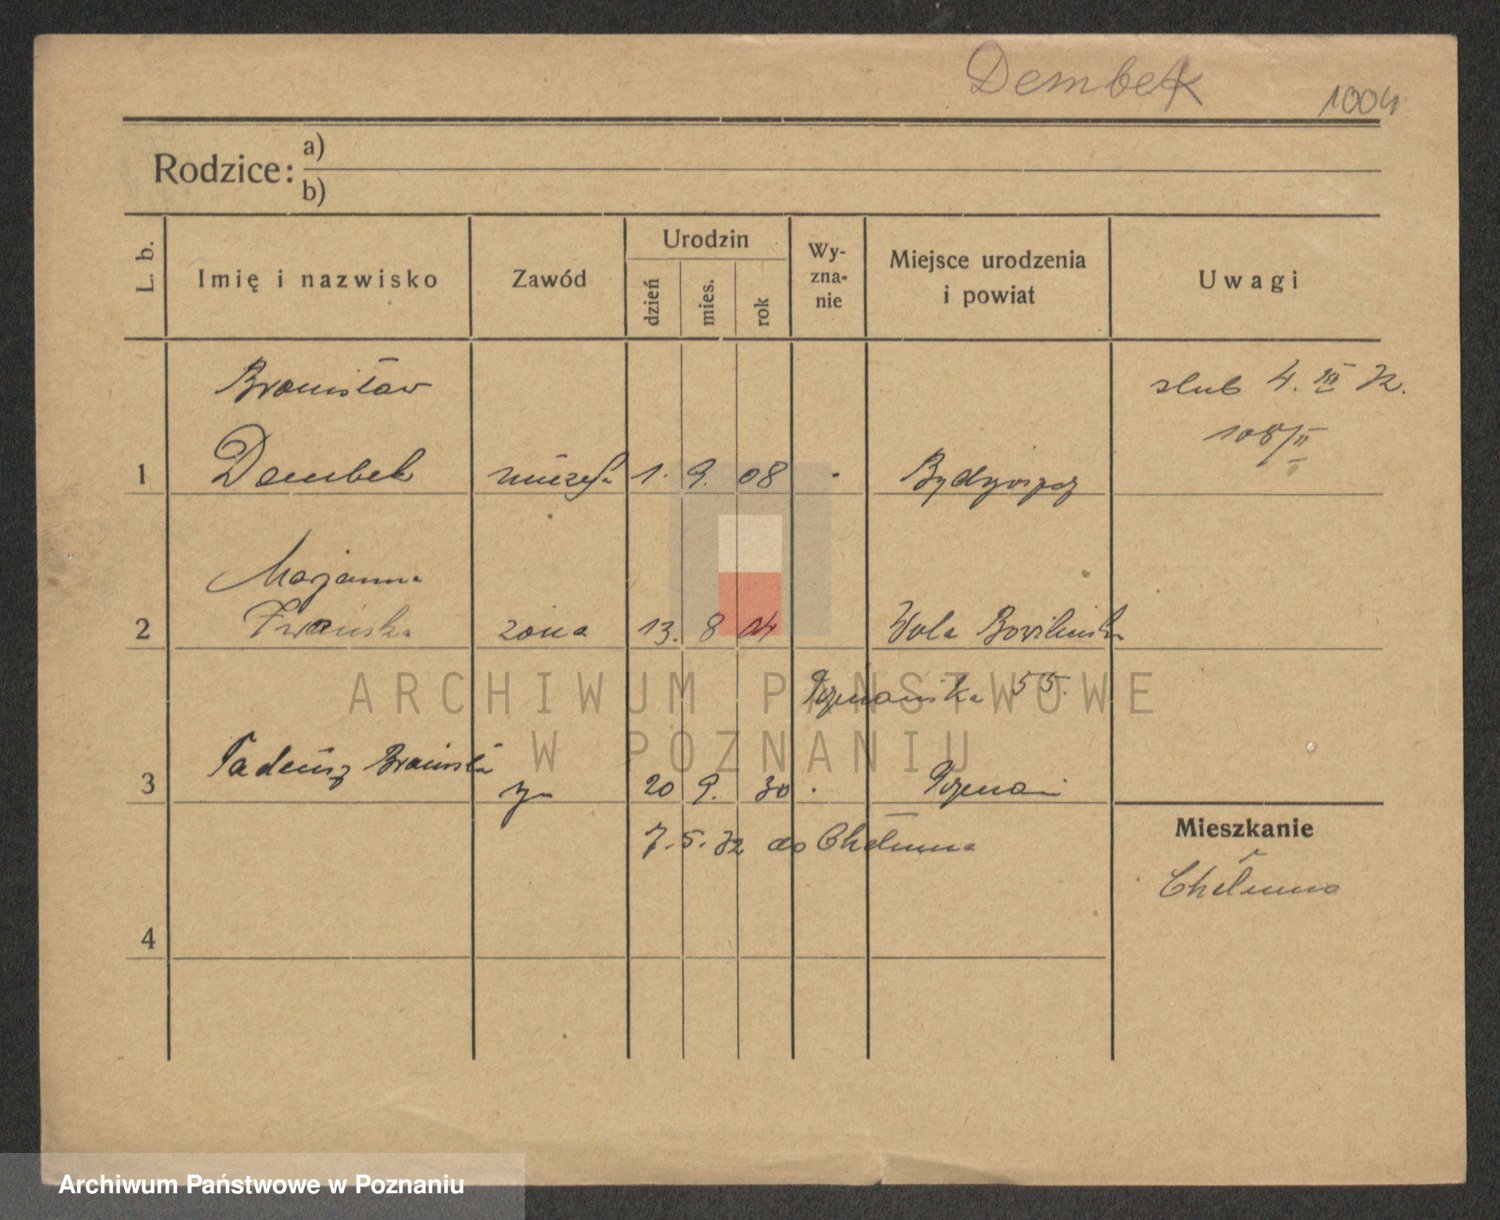 Dembek 1004
Rodzice: a)
b)
L. b. Imię i nazwisko Zawód Urodzin dzień mies. rok Wy-zna-nie Miejsce urodzenia i powiat Uwagi
Bronisław
ślub 4. III 32.
108/II
1 Dembek 1. 9. 08 Bydgoszcz
Marjanna
2 żona 13. 8 04 Wola
Poznańska 55.
3 Tadeusz syn 20 9. 30 Poznań
7. 5. 32 do Chełmna
Mieszkanie
Chełmno
4
ARCHIWUM PAŃSTWOWE
W POZNANIU
Archiwum Państwowe w Poznaniu